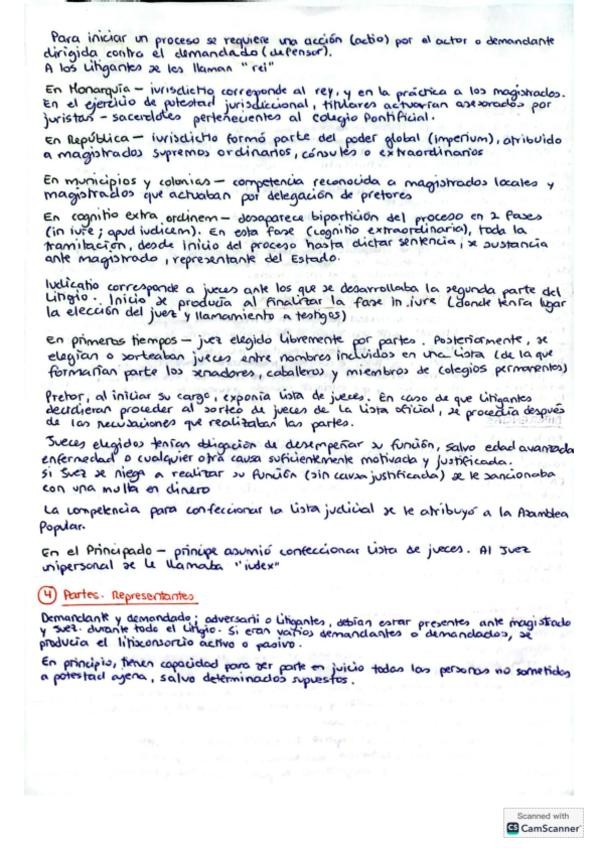 Para iniciar un proceso se requiere una acción (actio) por el actor o demandante
dirigida contra el demandado (defensor).
A los Litigantes se les llaman "rei"
En Monarquía - iurisdictio corresponde al rey, y en la práctica a los magistrados.
En el ejercicio de potestad jurisdiccional, titulares actuarían asesorados por
juristas - sacerdotes pertenecientes al colegio Pontificial.
En República - iurisdictio formó parte del poder global (imperium), atribuido
a magistrados supremos ordinarios, cónsules o extraordinarios
En municipios y colonias - competencia reconocida a magistrados locales y
magistrados que actuaban por delegación de pretores
En cognitio extra ordinem - desaparece bipartición del proceso en 2 fases
(in iure; apud iudicem). En esta fase (cognitio extraordinaria), toda la
tramitación, desde inicio del proceso hasta dictar sentencia, se sustancia
ante magistrado, representante del Estado.
Iudicatio corresponde a jueces ante los que se desarrollaba la segunda parte del
Litigio. Inicio se producía al finalizar la fase in iure (donde tenía lugar
la elección del juez y llamamiento a testigos)
En primeros tiempos - juez elegido libremente por partes. Posteriormente, se
elegían o sorteaban jueces entre nombres incluidos en una lista (de la que
formarían parte los senadores, caballeros y miembros de colegios permanentes)
Pretor, al iniciar su cargo, exponía lista de jueces. En caso de que Litigantes
decidieran proceder al sorteo de jueces de la lista oficial, se procedía después
de las recusaciones que realizaban las partes.
Jueces elegidos tenían obligación de desempeñar su función, salvo edad avanzada
enfermedad o cualquier otra causa suficientemente motivada y justificada.
Si Juez se niega a realizar su función (sin causa justificada) se le sancionaba
con una multa en dinero
La competencia para confeccionar la lista judicial se le atribuyó a la Asamblea
Popular.
En el Principado - príncipe asumió confeccionar lista de jueces. Al Juez
unipersonal se le llamaba "iudex"
4 Partes. Representantes
Demandante y demandado; adversarii o Litigantes, debían estar presentes ante magistrado
y Juez durante todo el litigio. Si eran varios demandantes o demandados, se
producía el litisconsorcio activo o pasivo.
En principio, tienen capacidad para ser parte en juicio todas las personas no sometidas
a potestad ajena, salvo determinados supuestos.
Scanned with
CS CamScanner